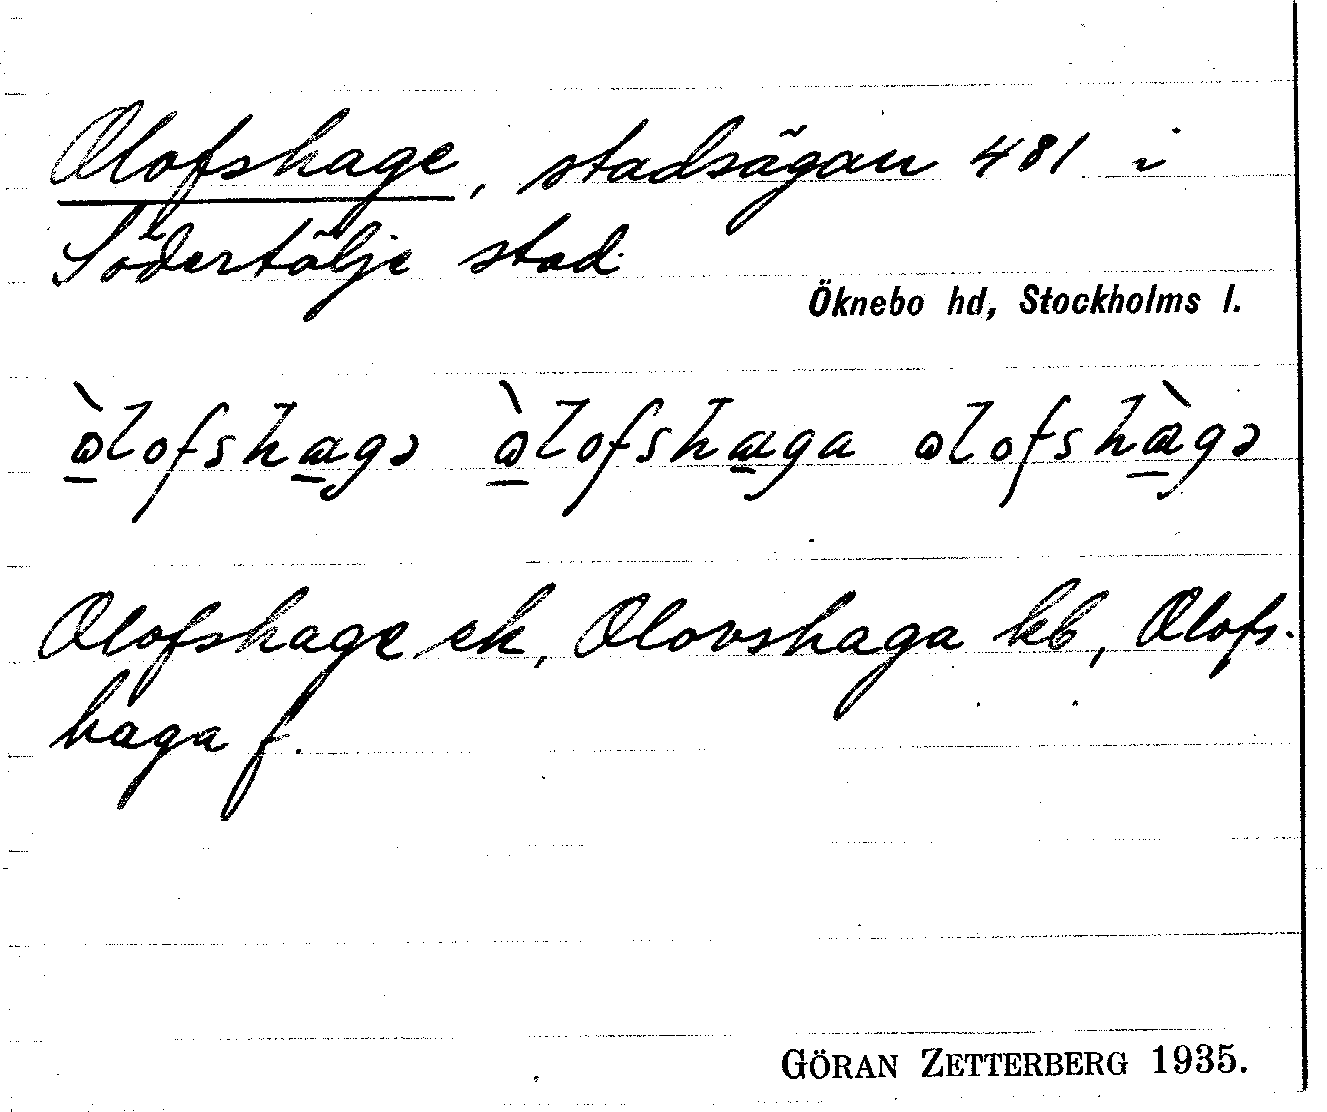 Olofshage, stadsägan 481 i
Södertälje stad
Öknebo hd, Stockholms l.
ò̲lofsha̲gə ò̲lofsha̲ga olofshà̲gə
Olofshage ek, Olovshaga kb, Olofs-
haga f.
GÖRAN ZETTERBERG 1935.